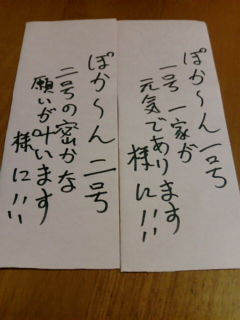 ぽか〜ん一号
一号一家が
元気であります
様に!!!
ぽか〜ん二号
二号の密かな
願いが叶います
様に!!!